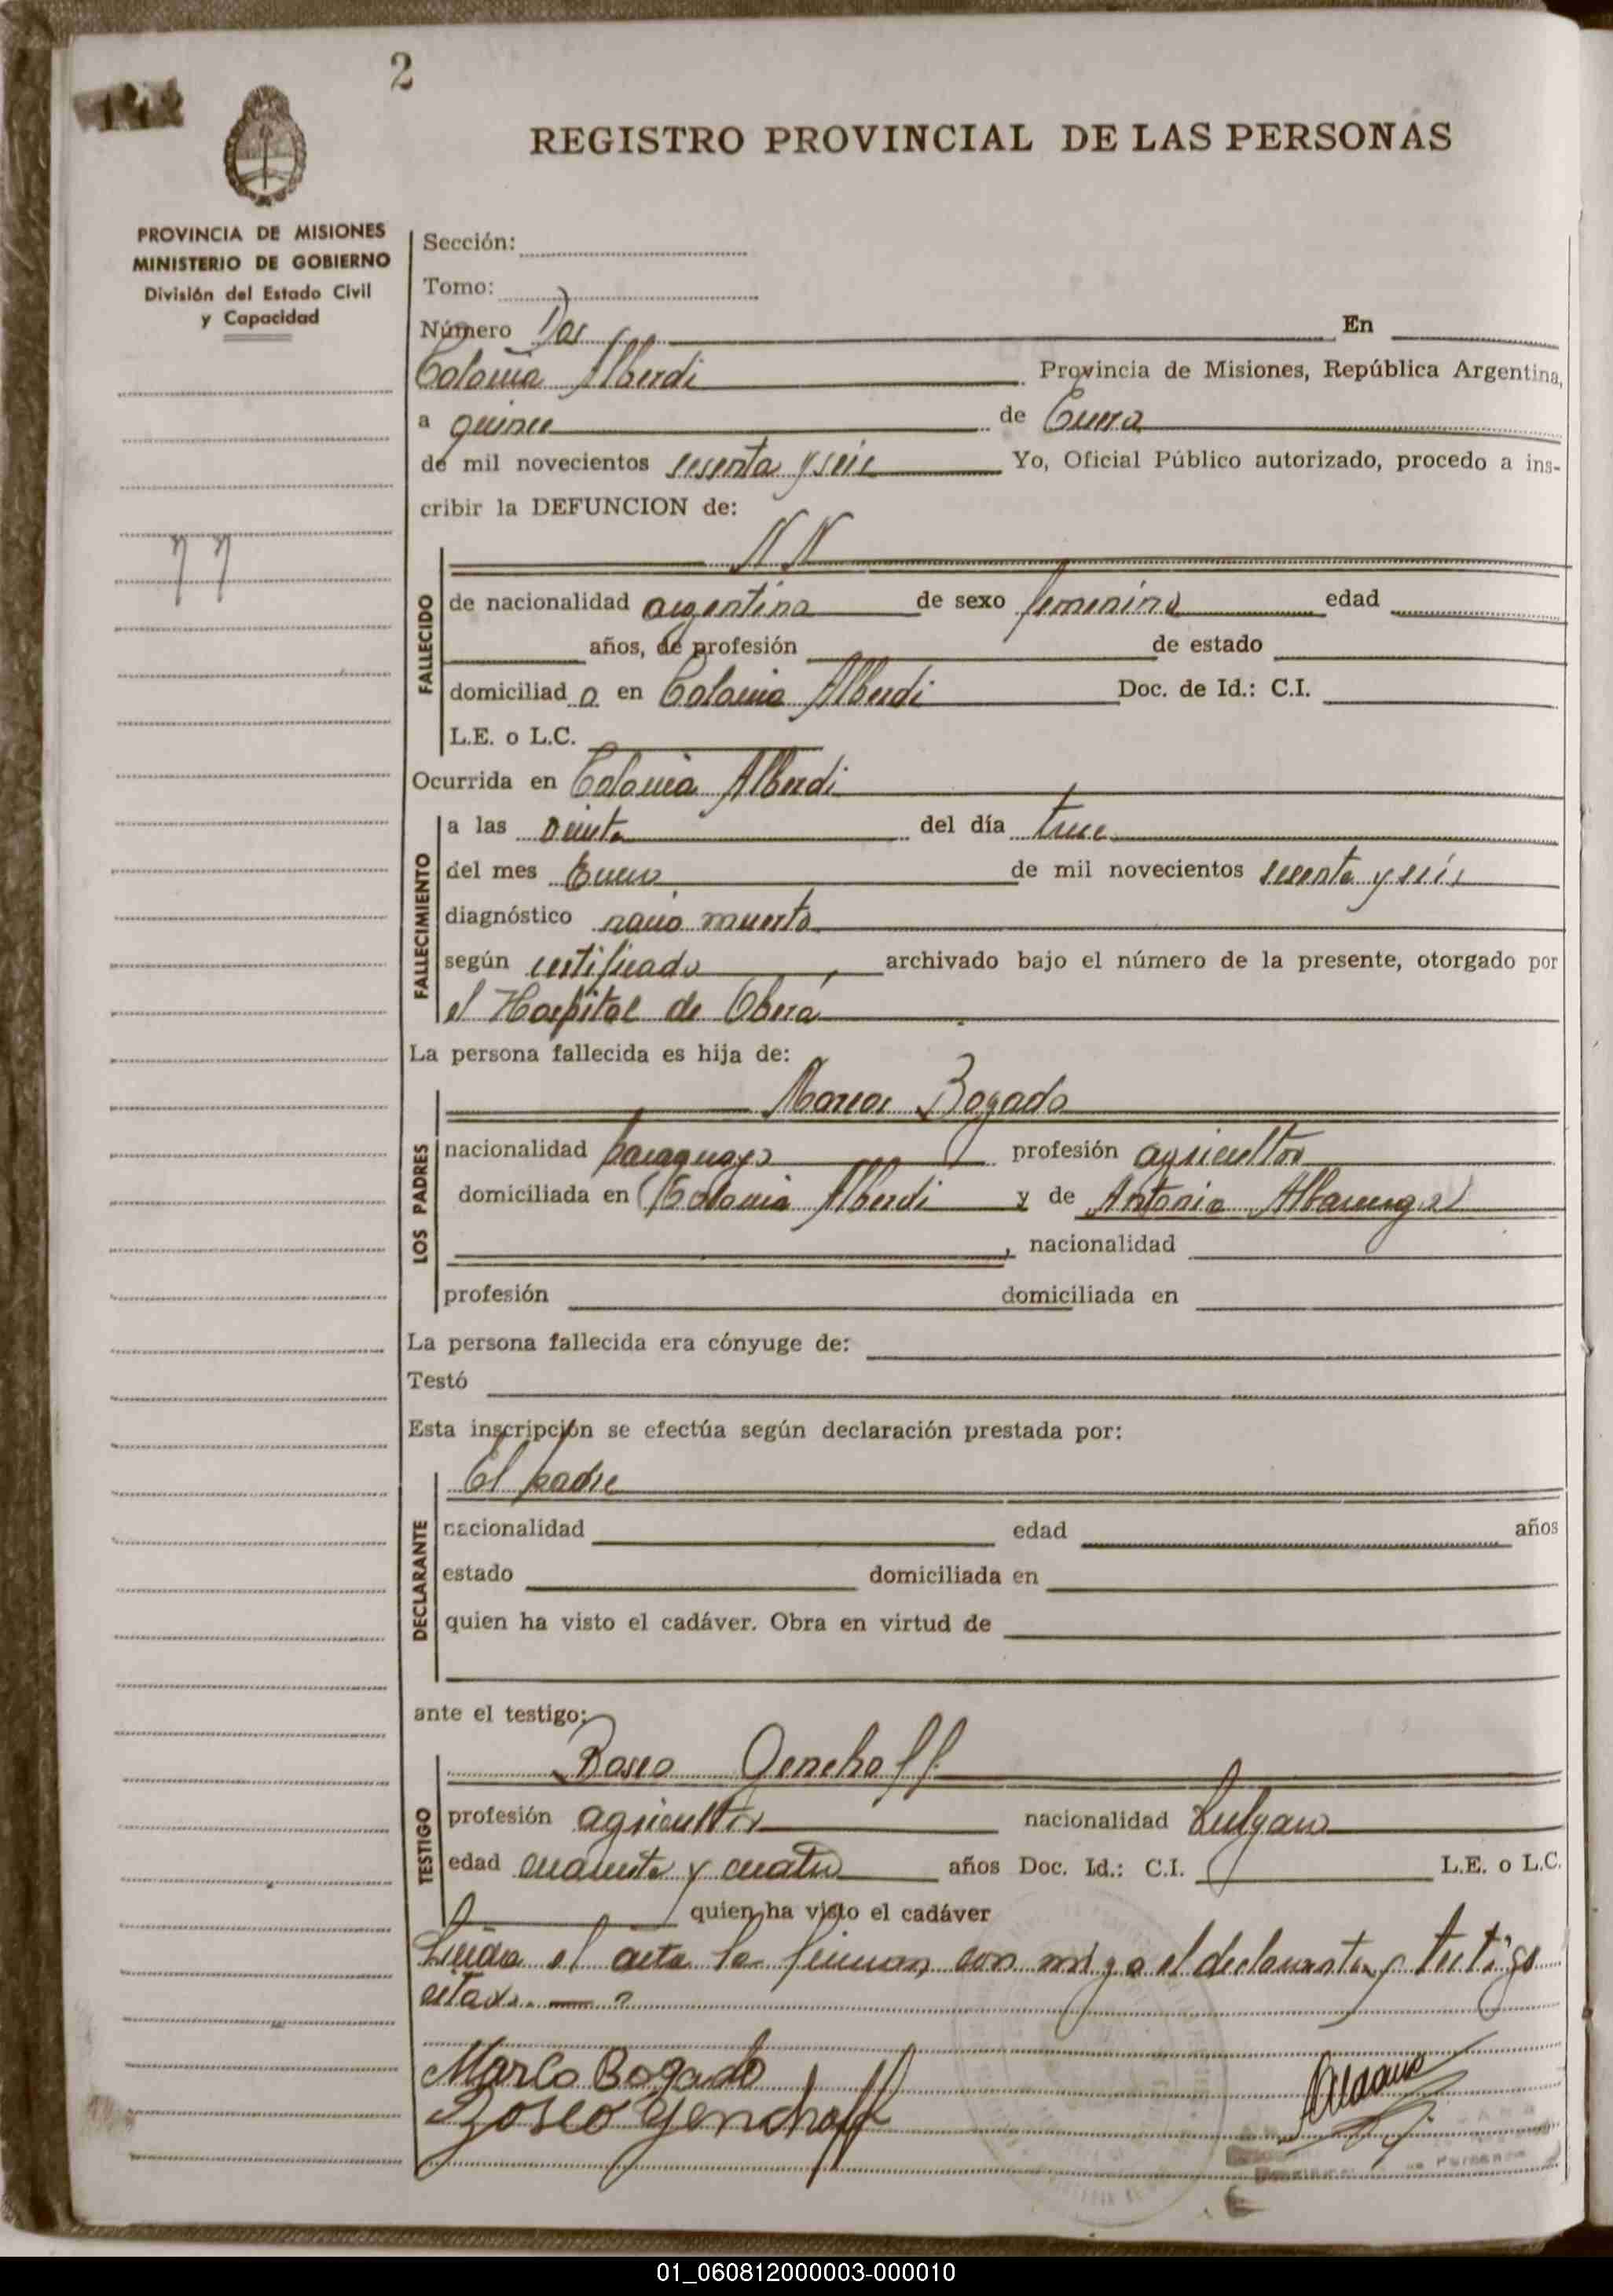 2
REGISTRO PROVINCIAL DE LAS PERSONAS
PROVINCIA DE MISIONES
MINISTERIO DE GOBIERNO
División del Estado Civil
y Capacidad
n n
Sección:
Tomo:
Número Dos En
Colonia Alberdi Provincia de Misiones, República Argentina,
a quince de Enero
de mil novecientos sesenta y seis Yo, Oficial Público autorizado, procedo a ins-
cribir la DEFUNCION de:
N N
FALLECIDO
de nacionalidad argentina de sexo femenino edad
años, de profesión de estado
domiciliad a en Colonia Alberdi Doc. de Id.: C.I.
L.E. o L.C.
Ocurrida en Colonia Alberdi
FALLECIMIENTO
a las veinte del día trece
del mes Enero de mil novecientos sesenta y seis
diagnóstico nació muerto
según certificado, archivado bajo el número de la presente, otorgado por
el Hospital de Oberá
La persona fallecida es hija de:
LOS PADRES
Marcos Bogado
nacionalidad paraguayo profesión agricultor
domiciliada en Colonia Alberdi y de Antonia
, nacionalidad
profesión domiciliada en
La persona fallecida era cónyuge de:
Testó
Esta inscripción se efectúa según declaración prestada por:
DECLARANTE
El padre
nacionalidad edad años
estado domiciliada en
quien ha visto el cadáver. Obra en virtud de
ante el testigo:
TESTIGO
Bosco Genchoff
profesión agricultor nacionalidad bulgaro
edad cuarenta y cuatro años Doc. Id.: C.I. L.E. o L.C.
quien ha visto el cadáver
Leida el acta la firman con migo el declarante y testigo
citado.
Marco Bogado
Bosco Genchoff
01_060812000003-000010